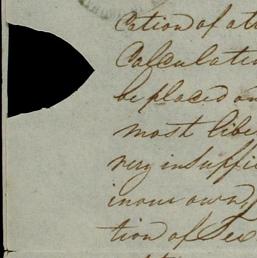 cation of at
Calculatio
be placed on
most libe
very insuffic
in our own
tion of Sec